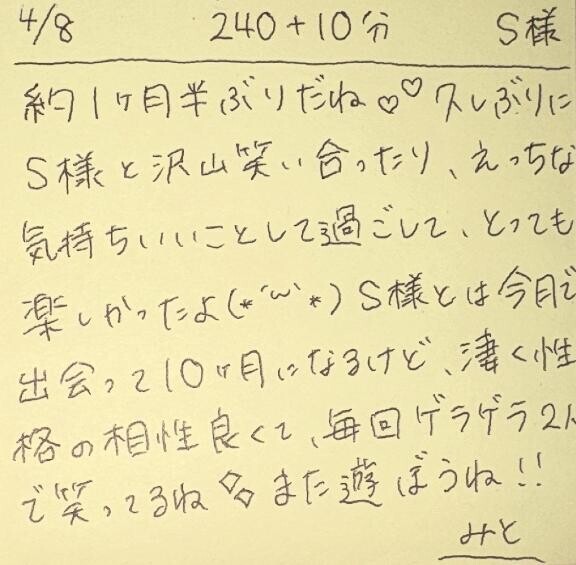 4/8 240+10分 S様
約1ヶ月半ぶりだね♡♡久しぶりに
S様と沢山笑い合ったり、えっちな
気持ちいいことして過ごして、とっても
楽しかったよ(*´ω`*)S様とは今月で
出会って10ヶ月になるけど、凄く性
格の相性良くて、毎回ゲラゲラ2人
で笑ってるね◇◇また遊ぼうね!!
みと